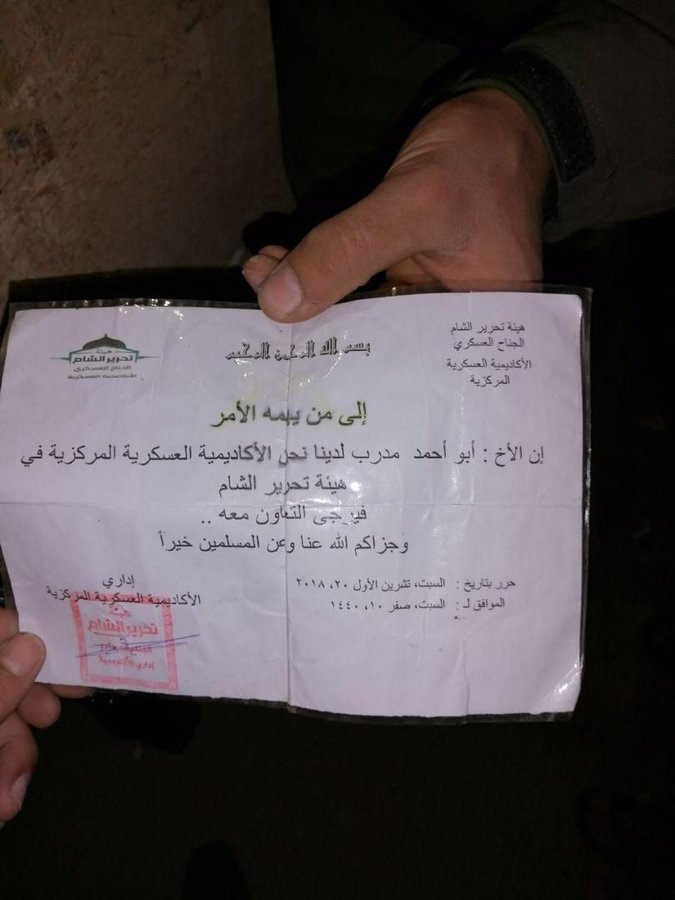 هيئة تحرير الشام
الجناح العسكري
الأكاديمية العسكرية
المركزية
هيئة
تحرير الشام
الجناح العسكري
الأكاديمية العسكرية
بسم الله الرحمن الرحيم
إلى من يهمه الأمر
إن الأخ : أبو أحمد مدرب لدينا نحن الأكاديمية العسكرية المركزية في
هيئة تحرير الشام
فيرجى التعاون معه ..
وجزاكم الله عنا وعن المسلمين خيراً
حرر بتاريخ : السبت، تشرين الأول ٢٠، ٢٠١٨
الموافق لـ : السبت، صفر ١٠، ١٤٤٠
إداري
الأكاديمية العسكرية المركزية
هيئة
تحرير الشام